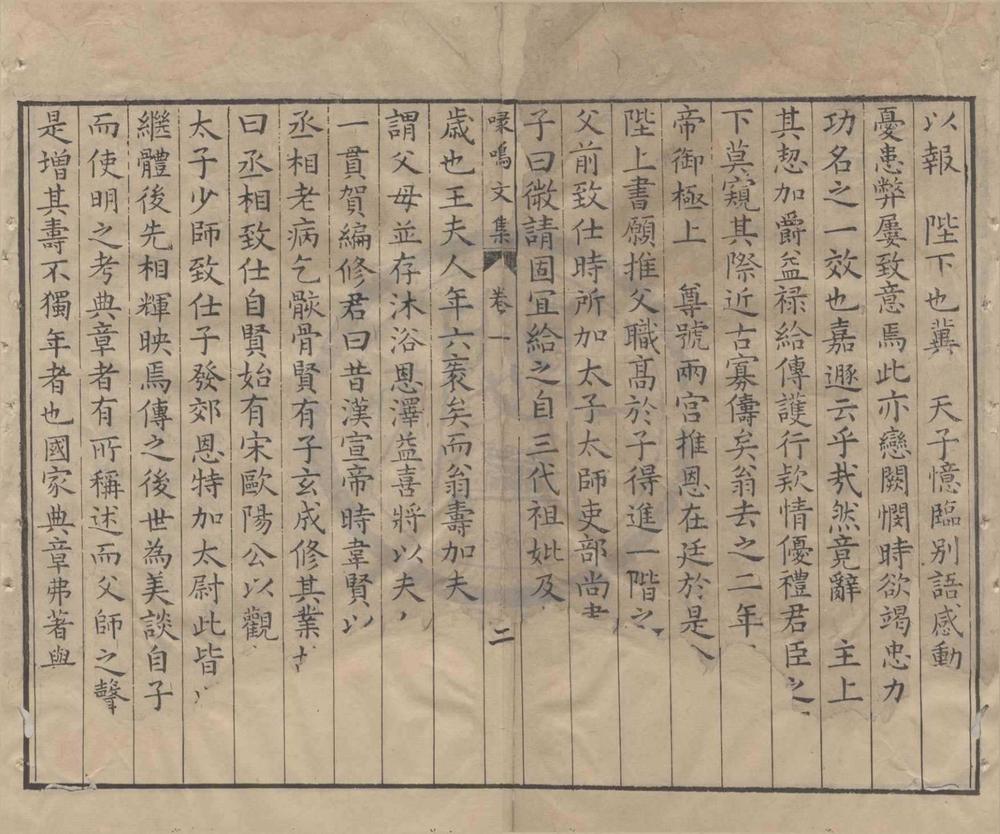 以報　陛下也冀　天子憶臨別語感動
憂患弊屢致意焉此亦戀闕憫時欲竭忠力
功名之一效也嘉遯云乎㢤然竟辭　主上
其恝加爵益禄給傳護行欵情優禮君臣之
下莫窺其際近古寡儔矣翁去之二年
帝御極上　尊號兩宫推恩在廷於是
陛上書願推父職髙於子得進一階之
父前致仕時所加太子太師吏部尚
子曰微請固宜給之自三代祖妣及
嚛鳴文集　卷一　二
歲也王夫人年六袠矣而翁壽加夫
謂父母並存沐浴恩澤益喜將以夫
一貫賀編修君曰昔漢宣帝時韋賢以
丞相老病乞骸骨賢有子玄成修其業
曰丞相致仕自賢始有宋歐陽公以觀
太子少師致仕子發郊恩特加太尉此皆
繼體後先相輝映焉傳之後世為美談自子
而使明之考典章者有所稱述而父師之聲
是增其壽不獨年者也國家典章弗著與